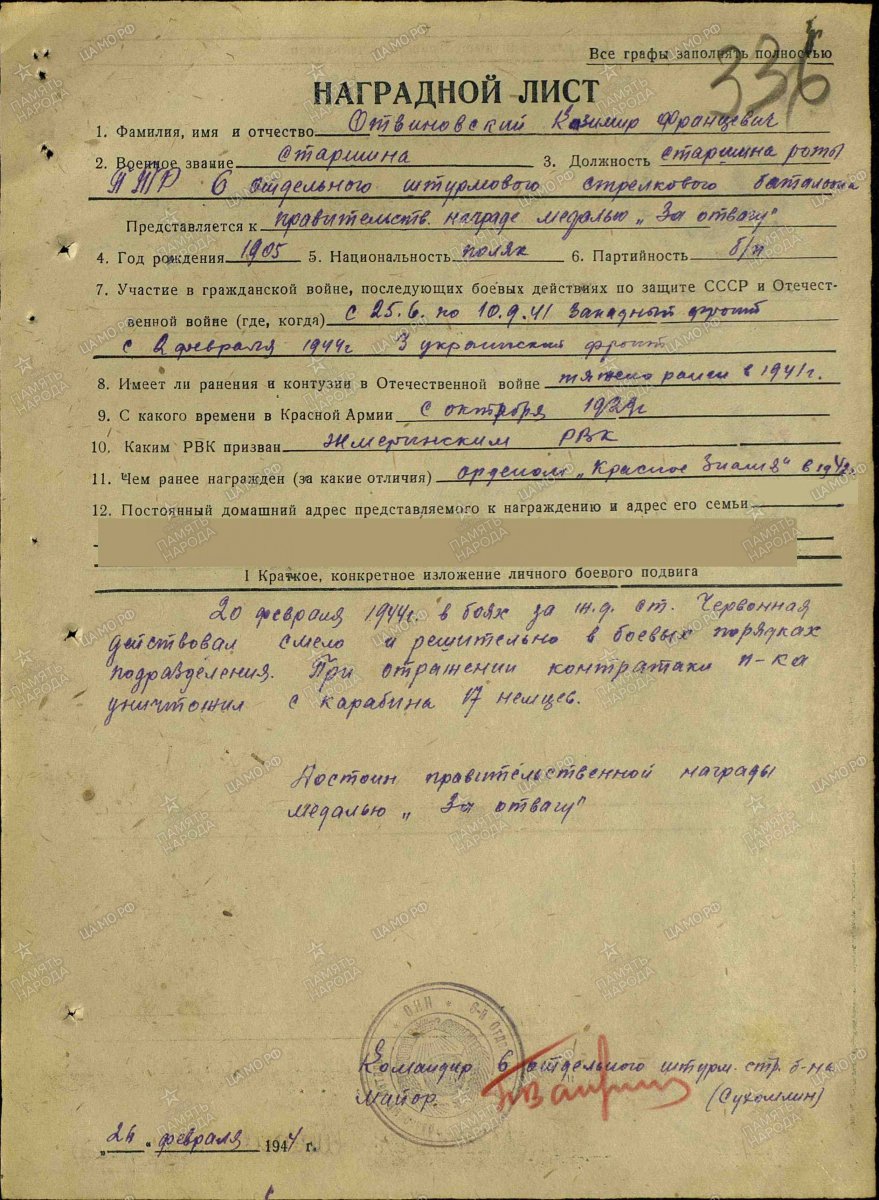 Все графы заполнять полностью
336
НАГРАДНОЙ ЛИСТ
1. Фамилия, имя и отчество Отвиновский Казимир Францевич
2. Военное звание старшина 3. Должность старшина роты
ПТР 6 отдельного штурмового стрелкового батальона
Представляется к правительств. награде медалью „За отвагу"
4. Год рождения 1905 5. Национальность поляк 6. Партийность б/п
7. Участие в гражданской войне, последующих боевых действиях по защите СССР и Отечест-
венной войне (где, когда) с 25.6. по 10.9.41 Западный фронт
с 2 февраля 1944г 3 украинский фронт
8. Имеет ли ранения и контузии в Отечественной войне тяжело ранен в 1941г.
9. С какого времени в Красной Армии с октября
10. Каким РВК призван Жмеринским РВК
11. Чем ранее награжден (за какие отличия) орденом „Красное Знамя" в
12. Постоянный домашний адрес представляемого к награждению и адрес его семьи
I Краткое, конкретное изложение личного боевого подвига
20 февраля 1944г. в боях за ж.д. ст. Червонная
действовал смело и решительно в боевых порядках
подразделения. При отражении контратаки п-ка
уничтожил с карабина 17 немцев.
Достоин правительственной награды
медалью „За отвагу"
Командир 6 отдельного штурм. стр. б-на
Майор (Сухомлин)
февраля 1944 г.